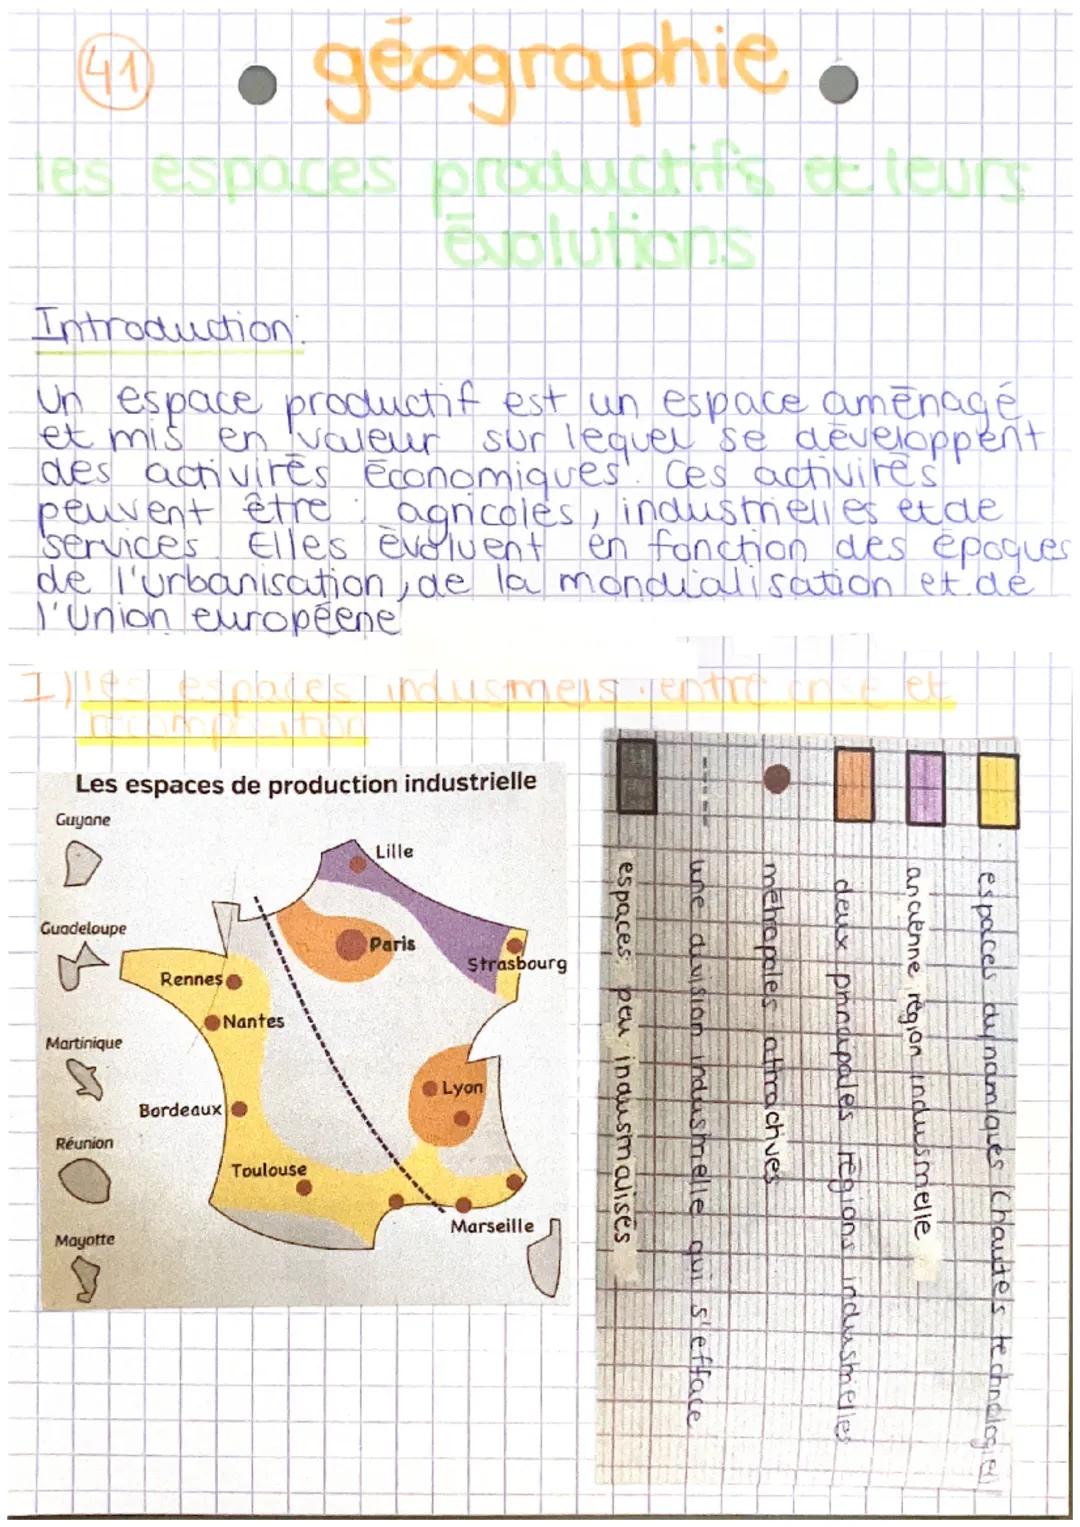 41
géographie
les espaces productifs et leurs
Évolutions
Introduction:
Un espace productif est un espace aménagé
et mis en valeur sur lequel se développent
des activirés économiques. Ces activirés
peuvent être : agricoles, industrielles et de
services. Elles évoluent en fonction des époques
de l'urbanisation, de la mondialisation et de
l'Union européene
I) les espaces industriels : entre crise et
recomposition
Les espaces de production industrielle
Guyane
Guadeloupe
Martinique
Réunion
Mayotte
Lille
Paris
Strasbourg
Rennes
Nantes
Lyon
Bordeaux
Toulouse
Marseille
espaces dynamiques (hautes technologie)
ancienne région industrielle
deux principales régions industrielles
métropoles attractives
une division industrielle qui s'efface
espaces peu industrialisés